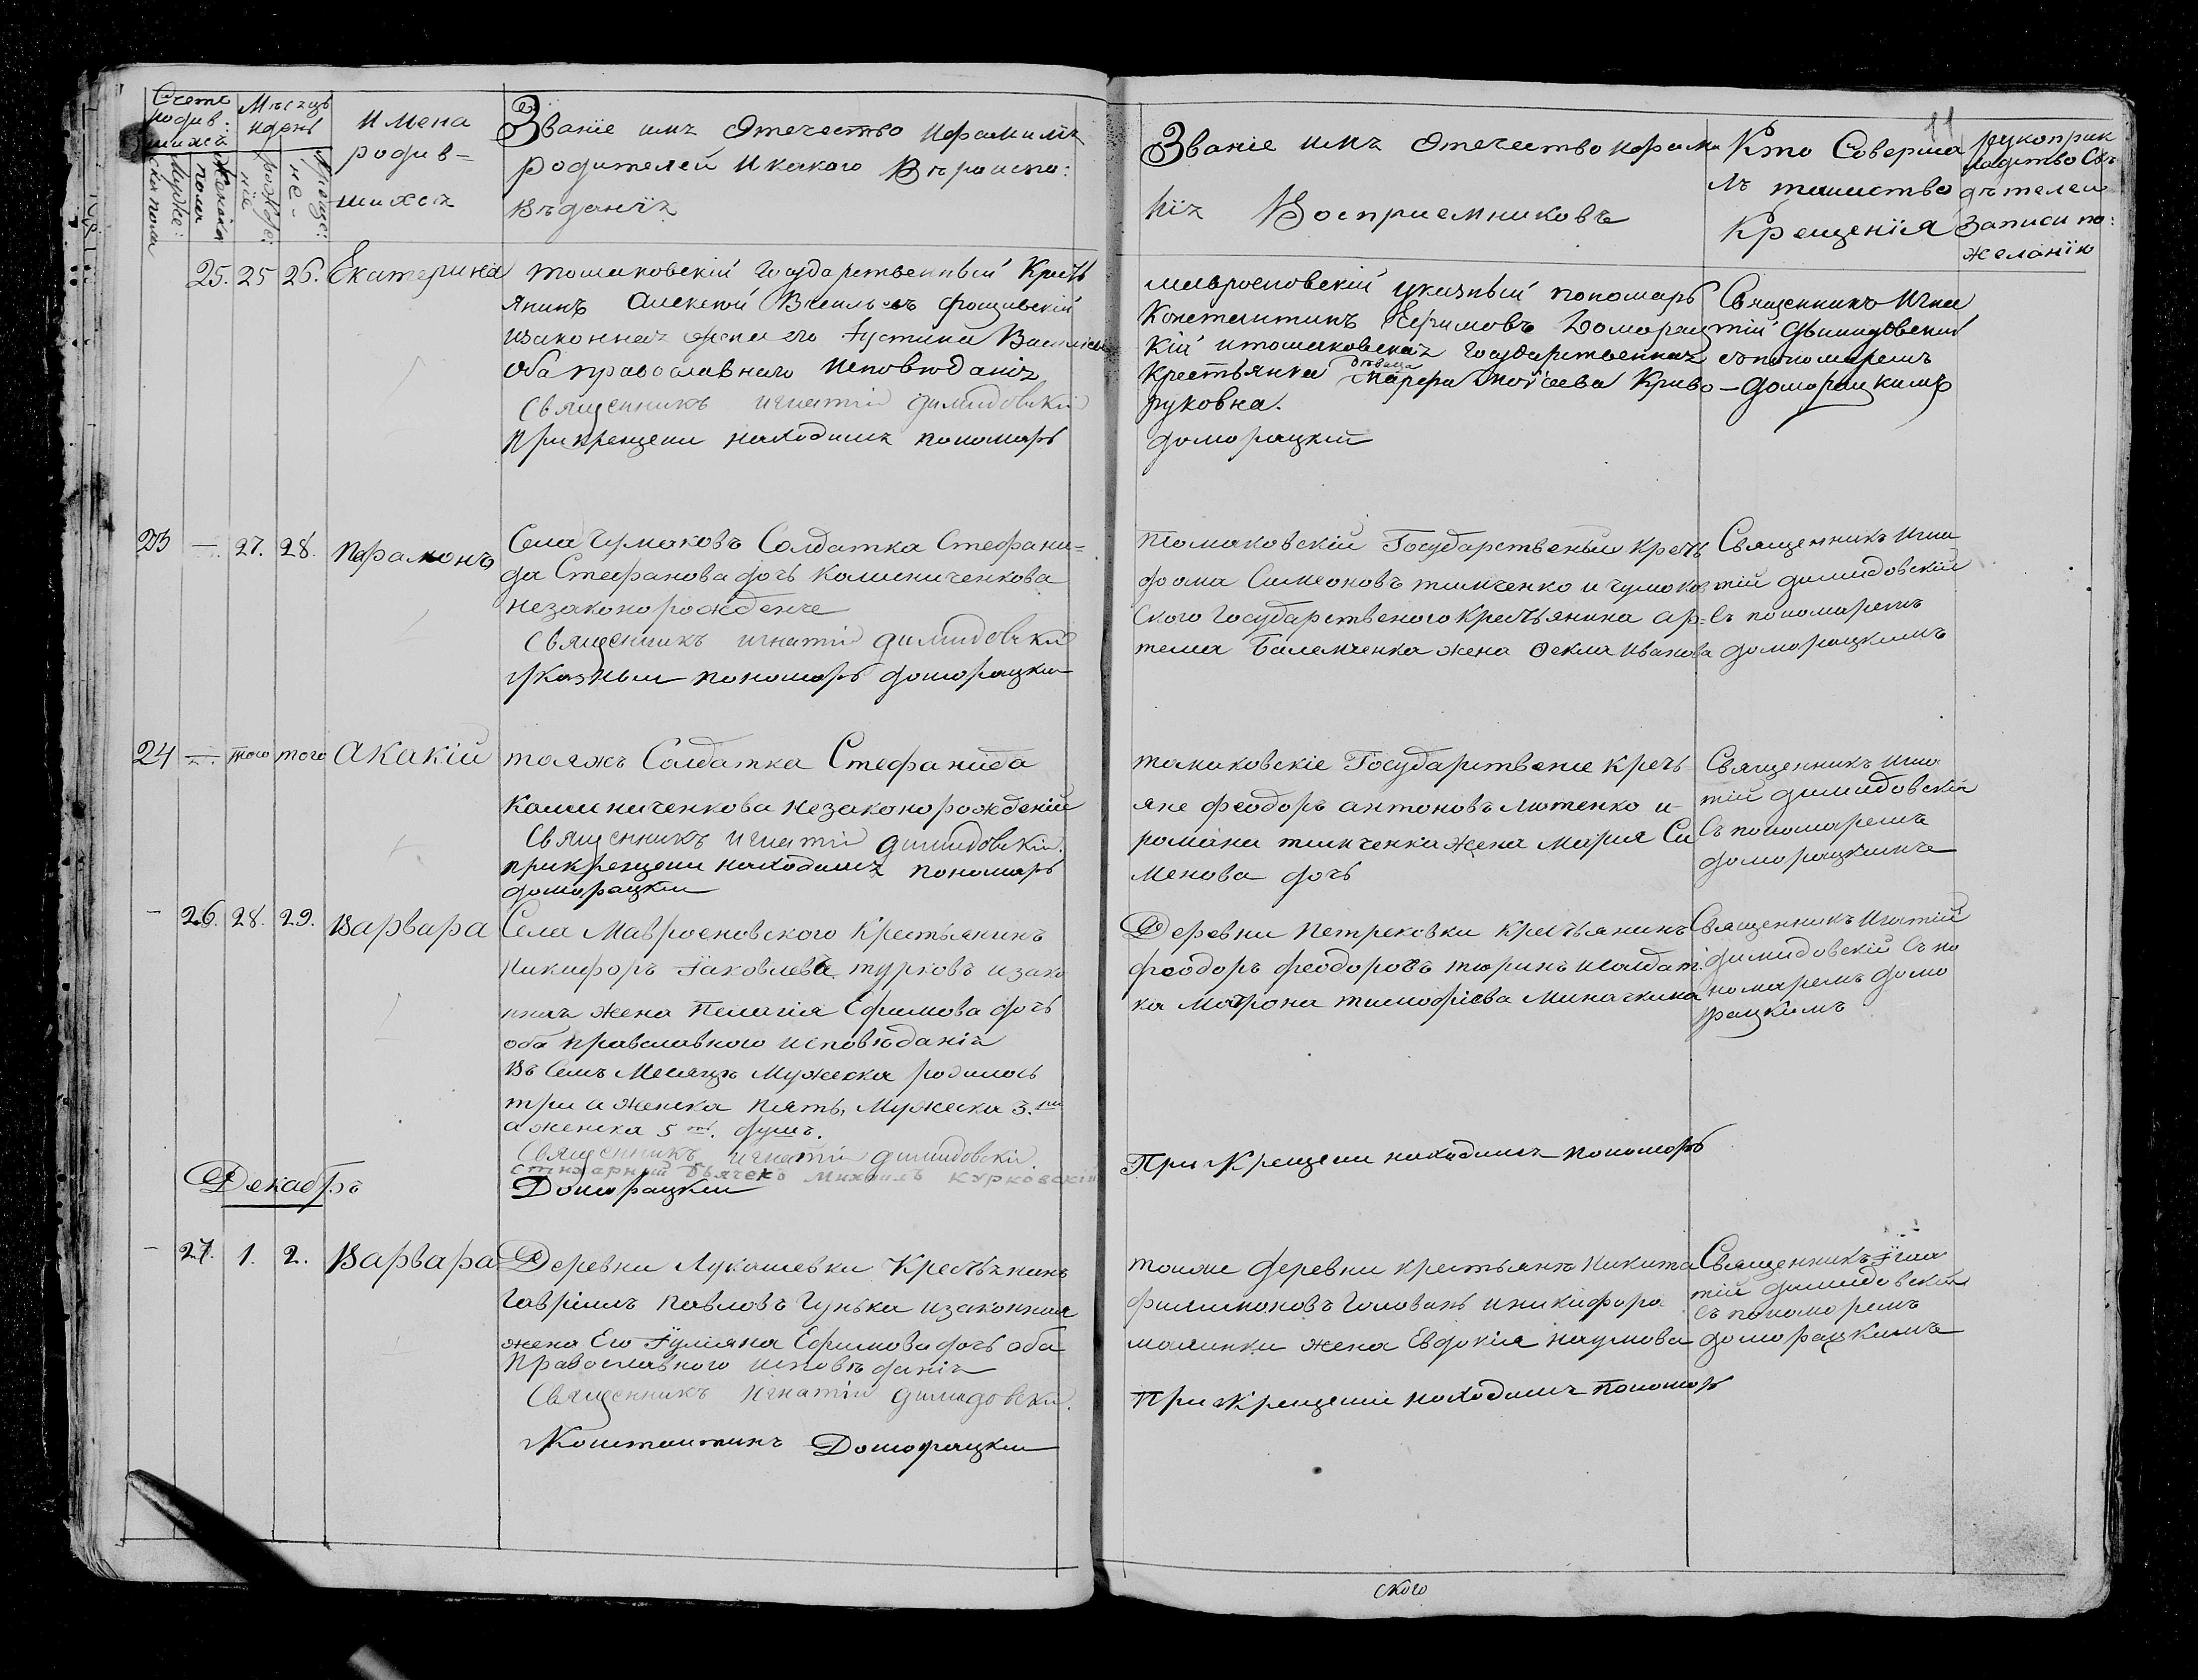 Счетъ родив: шихся
Муже: ска пола
Женска пола
Мѣсяцъ и день
рожде: ніе
Креще: ніе
Имена
родив=
шихся
Званіе имя Отечество и фамилія
родителей и какого Вѣроиспо:
вѣданія
25. 25 26. Екатерина
томаковскій государственный Кресть
янинъ Алексѣй
и законная жена его Іустина
оба православнаго исповѣданія
Священникъ игнатій димидовскій
при крещеніи находился пономарь
23 — 27. 28. Парамонъ
Села Чумаковъ Солдатка Стефани=
да Стефанова дочь Калиниченкова
незаконорожденъ
Священникъ игнатій димидовскій
Указный пономарь доморацкій
24 — того того Акакій
таяжъ Солдатка Стефанида
Калиниченкова незаконорожденій
Священникъ игнатій димидовскій.
при крещеніи находился пономарь
доморацкій
- 26. 28. 29. Варвара
Села Мавроеновского Крестьянинъ
Никифоръ Іаковлевъ турковъ и зако
ная жена Пелагія Ефимова дочь
оба православного исповѣданія
Въ Семъ Месяцѣ Мужеска родилось
три а женска пять, Мужеска 3.ри
а женска 5ть. душъ.
Священникъ игнатій димидовскій
стихарный дьячекъ Михаилъ Курковскій
Доморацкій
Декабрь
- 27. 1. 2. Варвара
Деревни Лукашевки Крестьянинъ
Гавріилъ Павловъ Гунька и законная
жена Его Іуліяна Ефимова дочь оба
Православного исповѣданія
Священникъ игнатій димидовскій.
Константинъ Доморацкій
11
Званіе имя Отечество и фами
лія Восприемниковъ
Кто Соверша
лъ таинство
Крещенія
рукоприк
ладство Сви
дѣтелей
Записи по:
желанію
мавроеновскій указный пономарь
Константинъ Ефимовъ Домарац
кій и томаковская государственная
дѣвица
Крестьянка Марфа Моісеева Криво
руковна.
доморацкій
Священникъ Игна
тій Димидовскій
съ пономаремъ
— Доморацкимъ
томаковскій Государственый Кресть
фома Симеоновъ тимченко и чумаков
ского Государственого Крестьянина ар=
тема Балемченка жена Ѳекла Иванова
Священникъ Игна
тій димидовскій
съ пономаремъ
доморацкимъ
томаковскіе Государствение Кресть
яне феодоръ антоновъ лютенко и
романа тимченка жена Марія Си
менова дочь
Священникъ Игна
тій димидовскій
съ пономаремъ
доморацкимъ
Деревни Петрековки Крестьянинъ
феодоръ феодоровъ тюринъ и салдат
ка Матрона тимофіева Миначкина
Священникъ Игнатій
димидовскій Съ по
номаремъ домо
рацкимъ
При Крещеніи находился пономарь
тоиже деревни крестьянъ Никита
филимоновъ Головань и никифора
малинки жена Евдокія наумова
Священникъ Ігна
тій димидовскій
съ пономаремъ
доморацкимъ
При Крещеніи находился Пономарь
ского